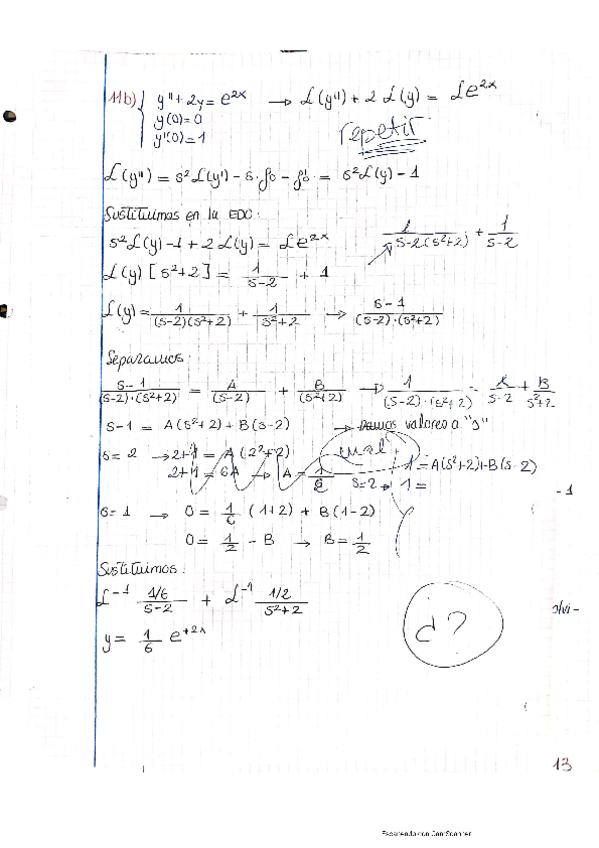 11b) y'' + 2y = e^2x → L(y'') + 2 L(y) = Le^2x
y(0)=0
y'(0)=1
repetir
L(y'') = s² L(y') - s·f0 - f'0 = s² L(y) - 1
Sustituimos en la EDO:
s² L(y) - 1 + 2 L(y) = Le^2x
1/(s-2(s²+2)) + 1/(s-2)
L(y) [s²+2] = 1/(s-2) + 1
L(y) = 1/((s-2)(s²+2)) + 1/(s²+2) → (s-1)/((s-2)·(s²+2))
Separamos:
(s-1)/((s-2)·(s²+2)) = A/(s-2) + B/(s²+2) → 1/((s-2)·(s²+2)) = A/(s-2) + B/(s²+2)
s-1 = A(s²+2) + B(s-2) → Damos valores a "s"
s=2 → 2+1 = A(2²+2)
2+1 = 6A → A =
1 = A(s²+2)+B(s-2)
s=2 → 1 =
s=1 → 0 = 1/6 (1+2) + B(1-2)
0 = 1/2 - B → B = 1/2
Sustituimos:
L^-1 (1/6)/(s-2) + L^-1 (1/2)/(s²+2)
y = 1/6 e^+2x
¿?
- 1
13
Escaneado con CamScanner